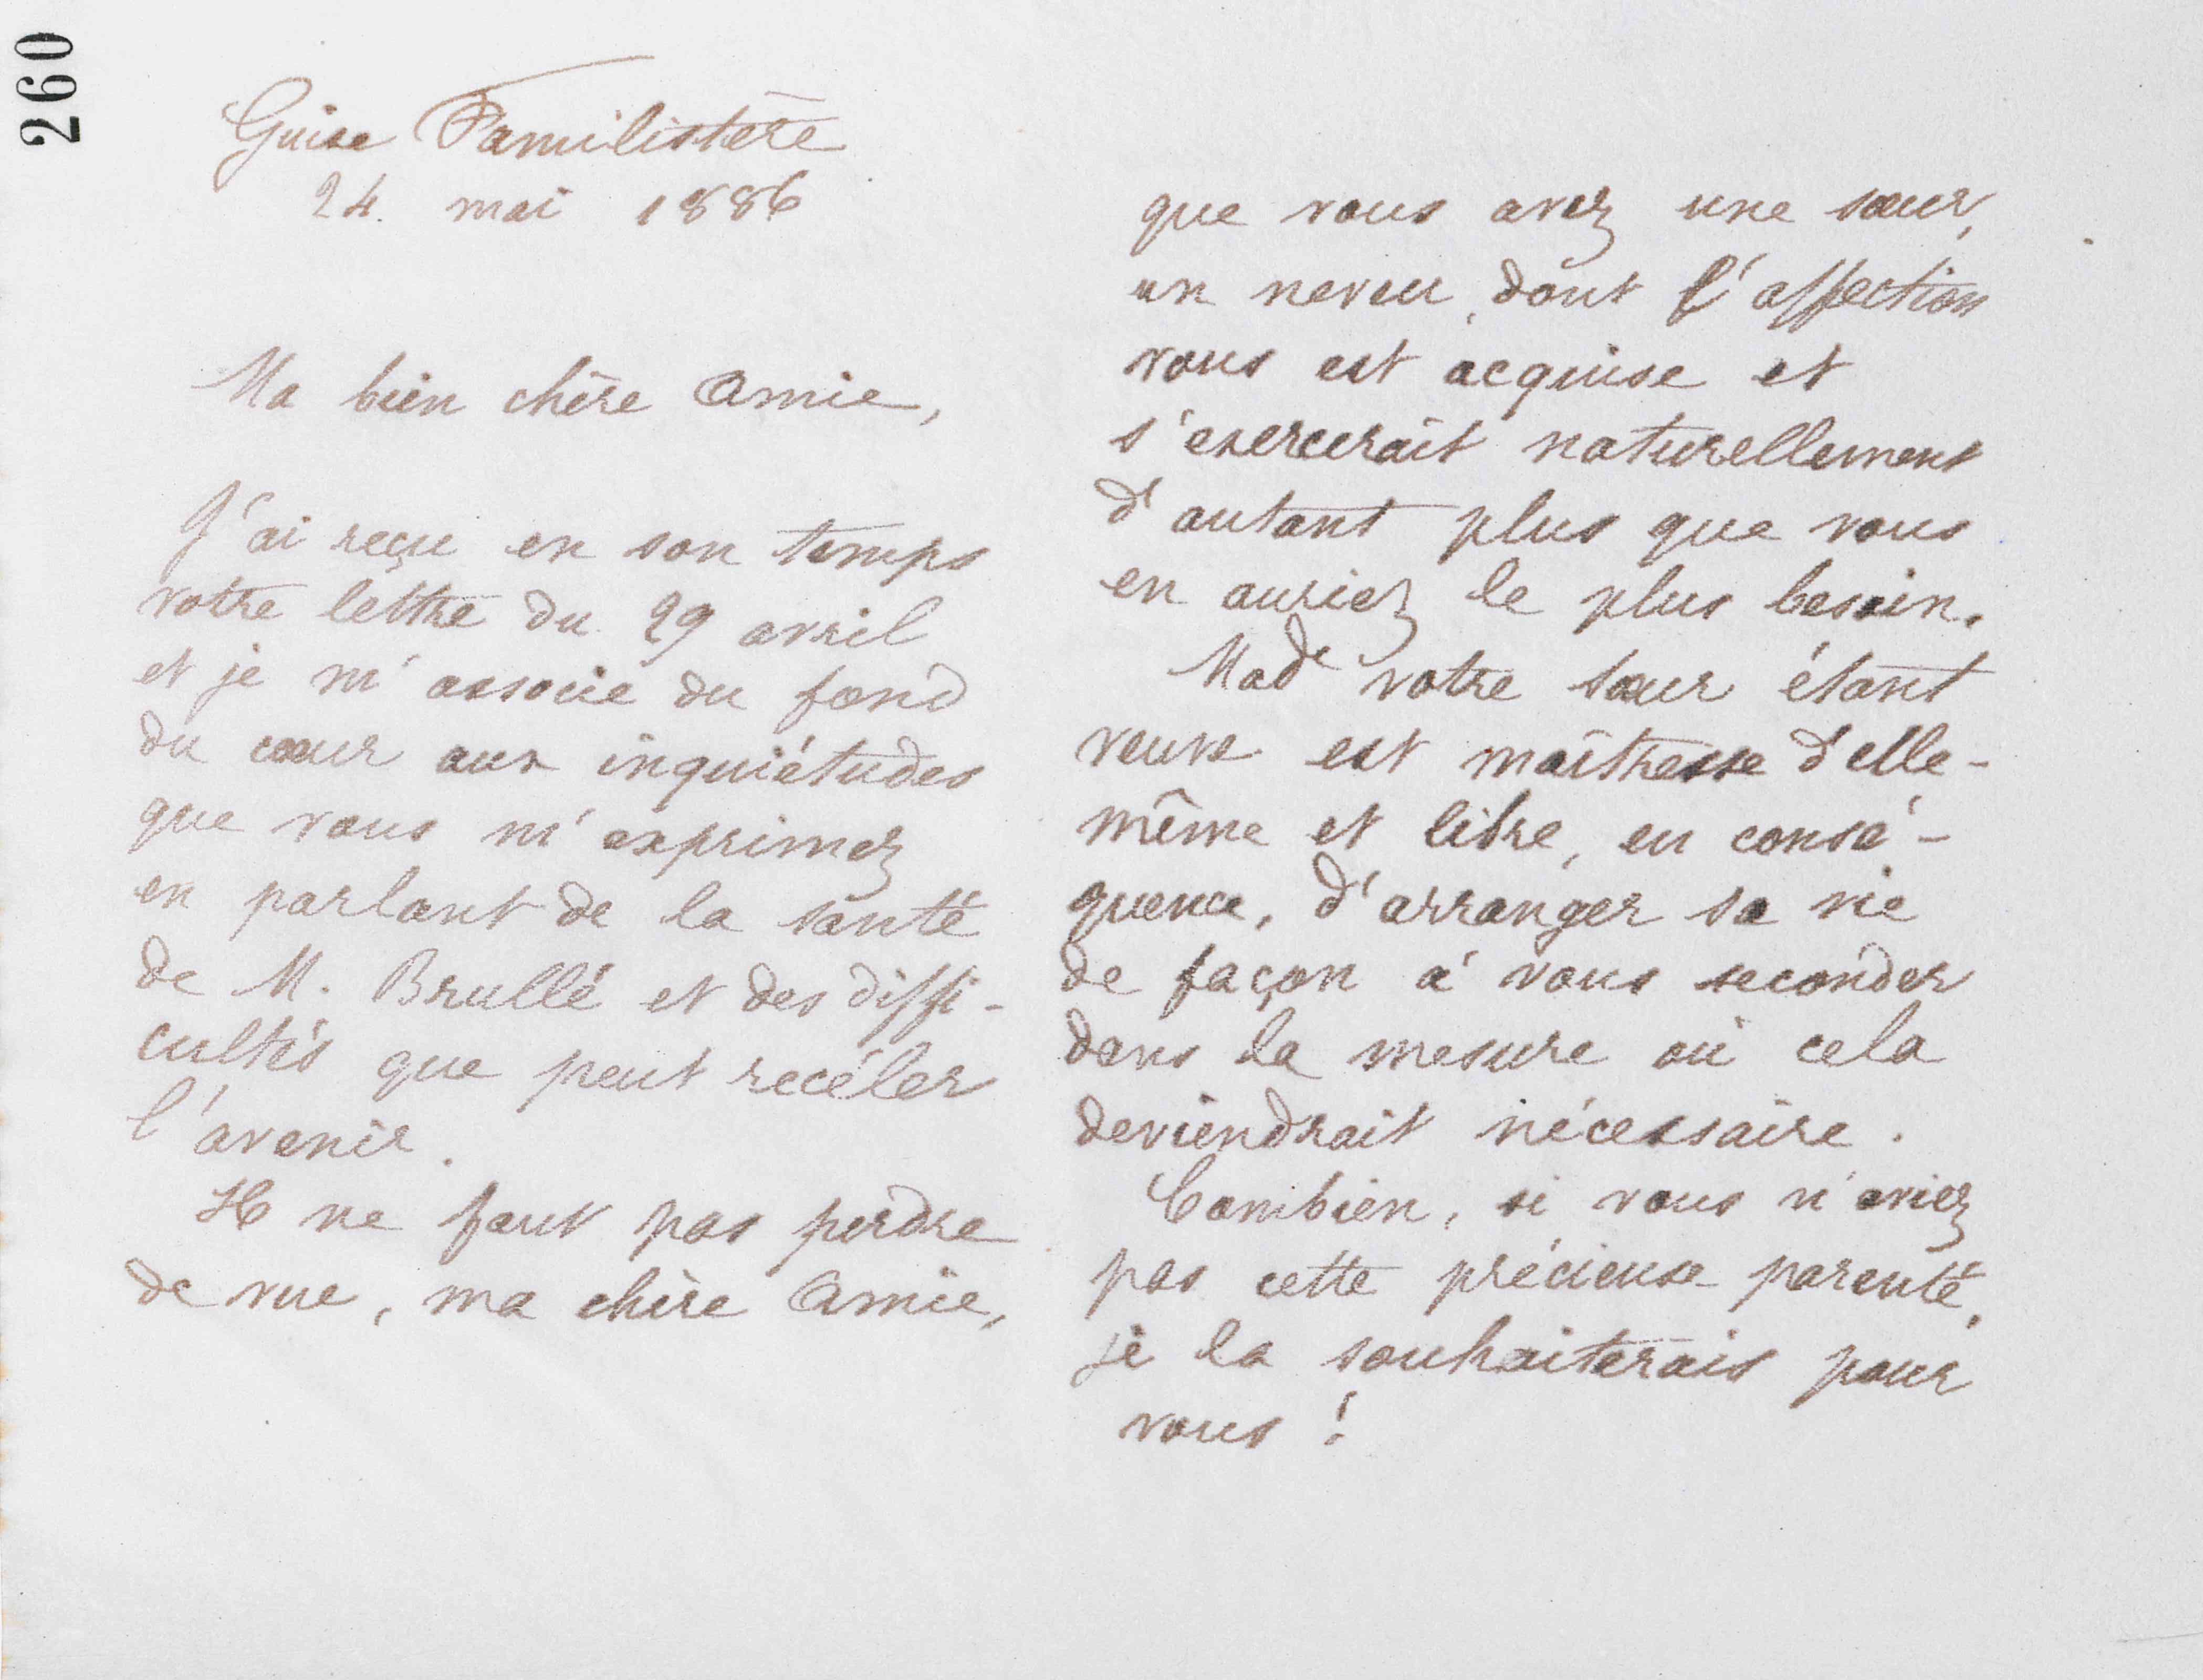 260
Guise Familistère
24 mai 1886
Ma bien chère Amie,
J'ai reçu en son temps
votre lettre du 29 avril
et je m'associe du fond
du cœur aux inquiétudes
que vous m'exprimez
en parlant de la santé
de M. Brullé et des diffi-
cultés que peut recéler
l'avenir.
Il ne faut pas perdre
de vue, ma chère Amie,
que vous avez une sœur,
un neveu, dont l'affection
vous est acquise et
s'exercerait naturellement
d'autant plus que vous
en auriez le plus besoin.
Made votre sœur étant
veuve est maîtresse d'elle-
même et libre, en consé-
quence, d'arranger sa vie
de façon à vous seconder
dans la mesure où cela
deviendrait nécessaire.
Combien, si vous n'aviez
pas cette précieuse parenté,
je la souhaiterais pour
vous !